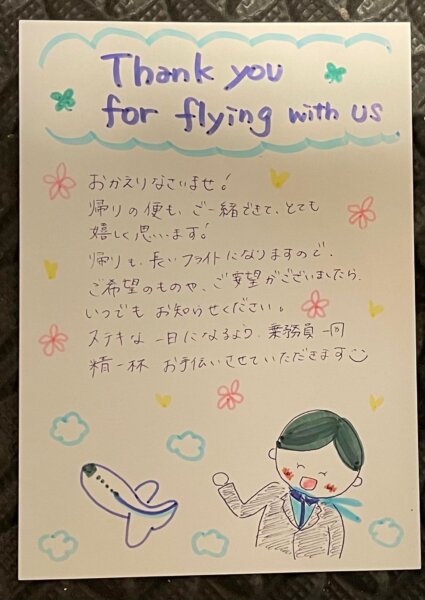 Thank you
for flying with us
おかえりなさいませ!
帰りの便も、ご一緒できて、とても
嬉しく思います!
帰りも、長いフライトになりますので、
ご希望のものや、ご要望がございましたら、
いつでも お知らせください。
ステキな 一日になるよう、乗務員一同
精一杯 お手伝いさせていただきます☺